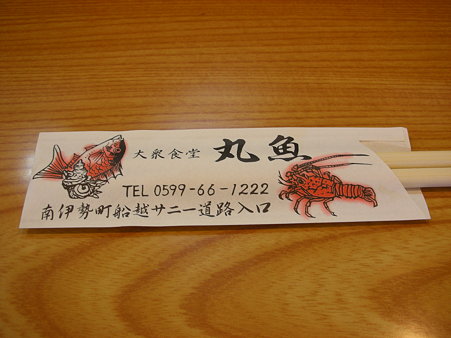 大衆食堂 丸魚
TEL 0599-66-1222
南伊勢町船越サニー道路入口